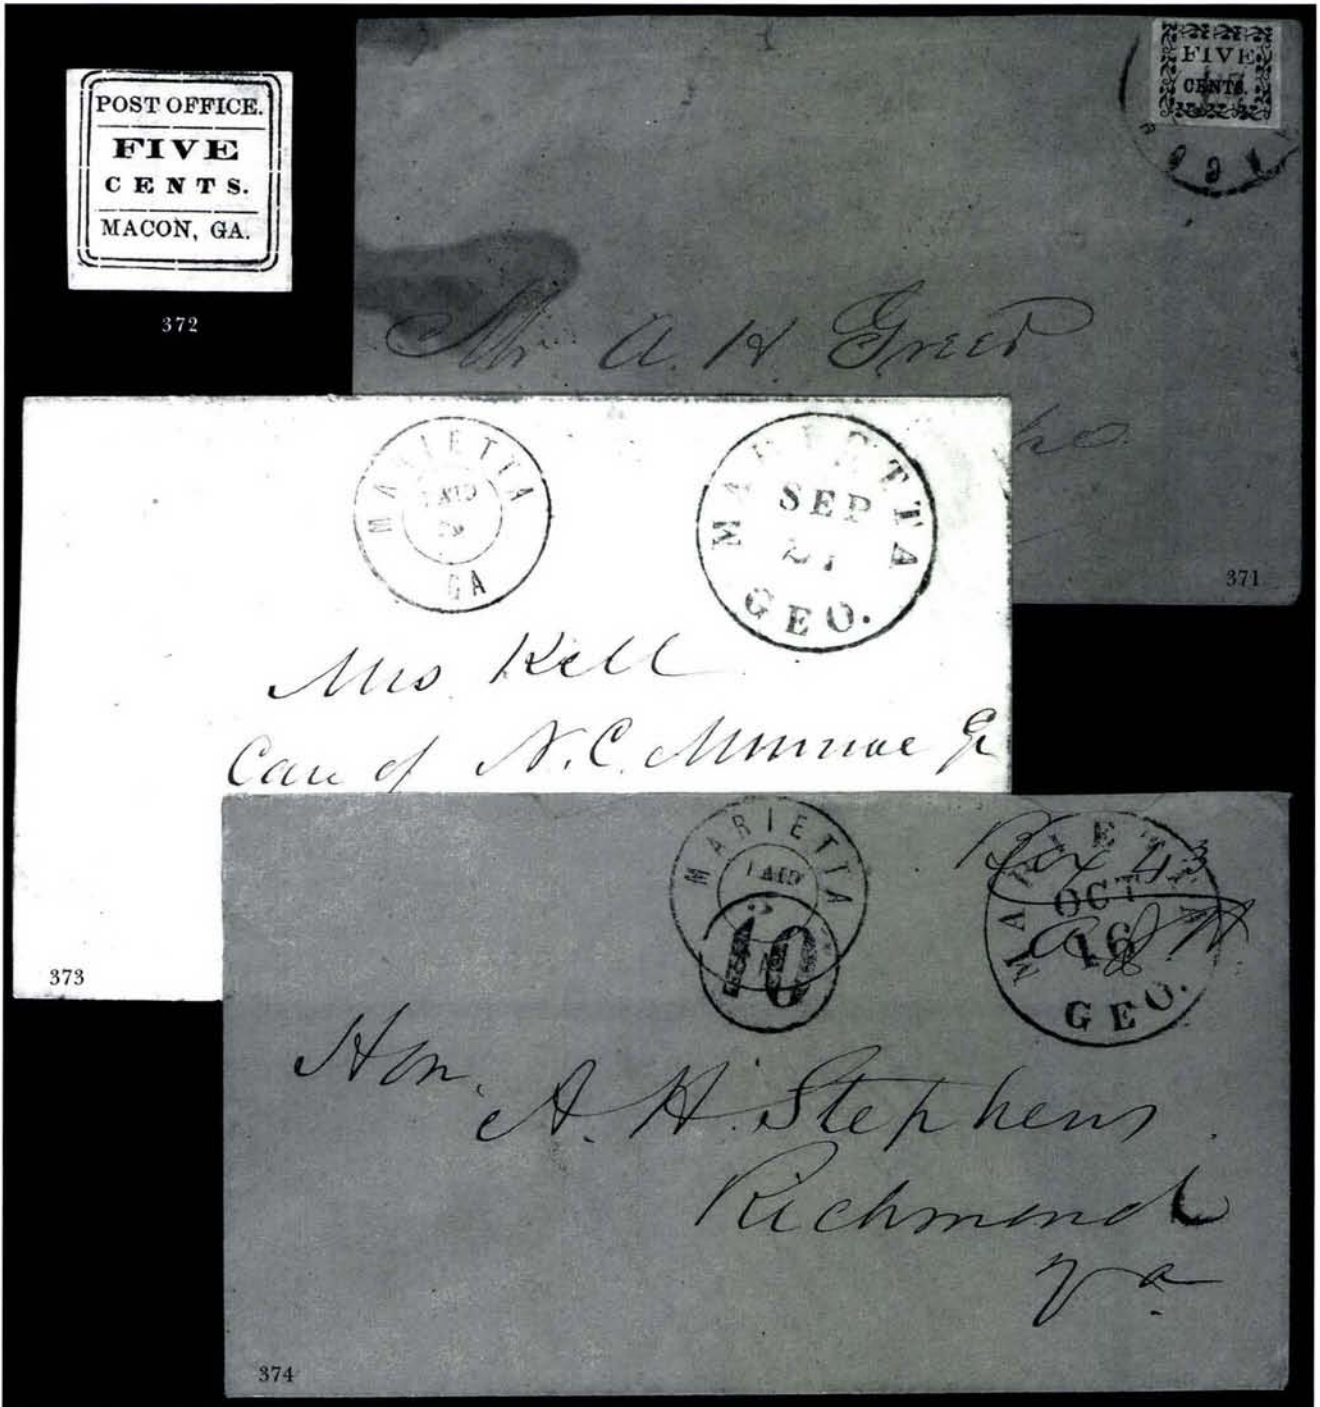 POST OFFICE.
FIVE
CENTS.
MACON, GA.
372
FIVE
CENTS.
Mr A. H. Greer
371
MARIETTA
PAID
GA
MARIETTA
SEP
GEO.
Mrs Kell
Care of N. C. Munroe
373
MARIETTA
PAID
10
MARIETTA
OCT
16
GEO.
Box 43
Hon.
A. H. Stephens
Richmond
Va
374